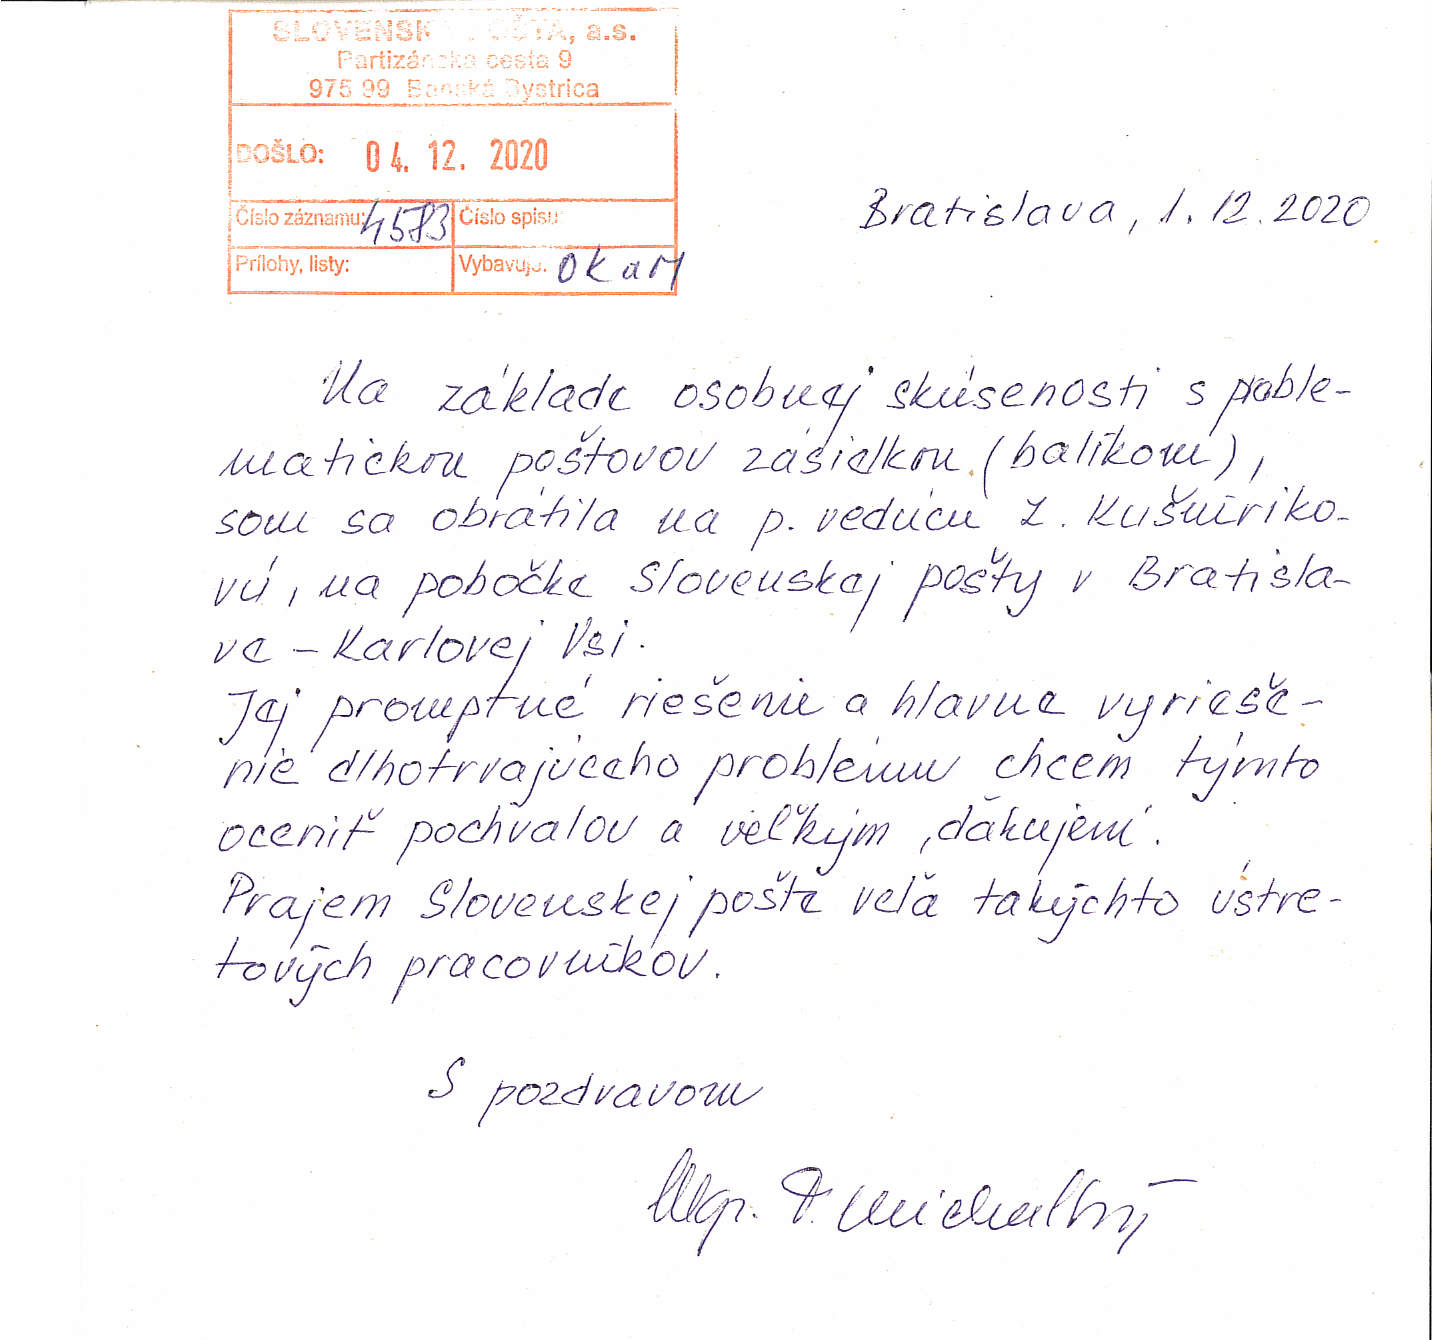 SLOVENSKÁ POŠTA, a.s.
Partizánska cesta 9
975 99 Banská Bystrica
DOŠLO: 04. 12. 2020
Číslo záznamu: 4583 Číslo spisu:
Prílohy, listy: Vybavuje: OKaM
Bratislava, 1. 12. 2020
Na základe osobnej skúsenosti s proble-
matickou poštovou zásielkou (balíkom),
som sa obrátila na p. vedúcu Z. Kušníriko-
vú, na pobočke Slovenskej pošty v Bratisla-
ve – Karlovej Vsi.
Jej promptné riešenie a hlavne vyrieše-
nie dlhotrvajúceho problému chcem týmto
oceniť pochvalou a veľkým ,ďakujem'.
Prajem Slovenskej pošte veľa takýchto ústre-
tových pracovníkov.
S pozdravom
Mgr.